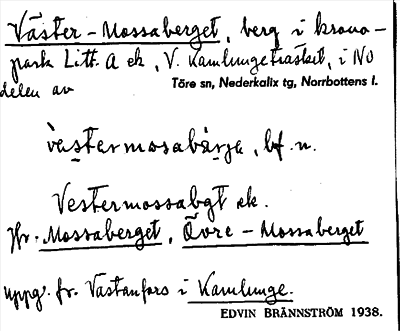 Väster-Mossaberget, berg i krono-
park Litt. A ek, V. Kamlungeträsket, i NO
delen av Töre sn, Nederkalix tg, Norrbottens l.
vestermosabärje, bf. n.
Vestermossabgt ek.
Jfr. Mossaberget, Övre-Mossaberget
uppg. fr. Västanfors i Kamlunge.
EDVIN BRÄNNSTRÖM 1938.